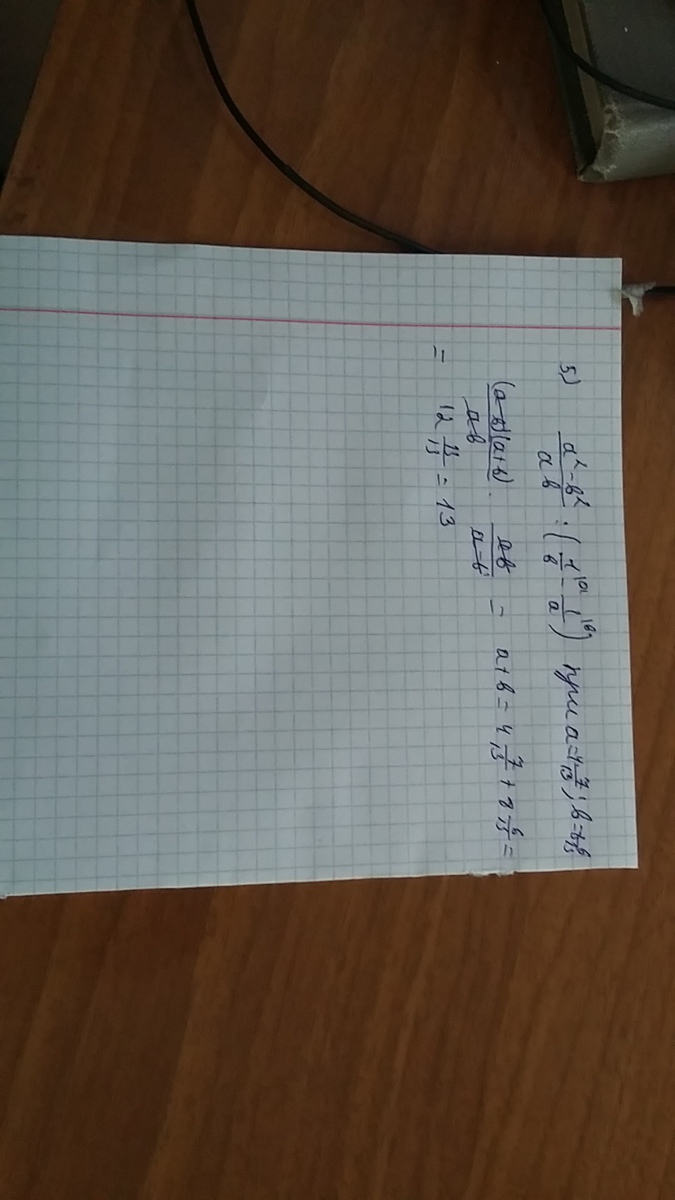 5) (a² - b²)/(ab) : (1/b |a - 1/a |b) при a = 4 7/13; b = 8 6/13
((a-b)(a+b))/(ab) · (ab)/(a-b) = a+b = 4 7/13 + 8 6/13 =
= 12 13/13 = 13